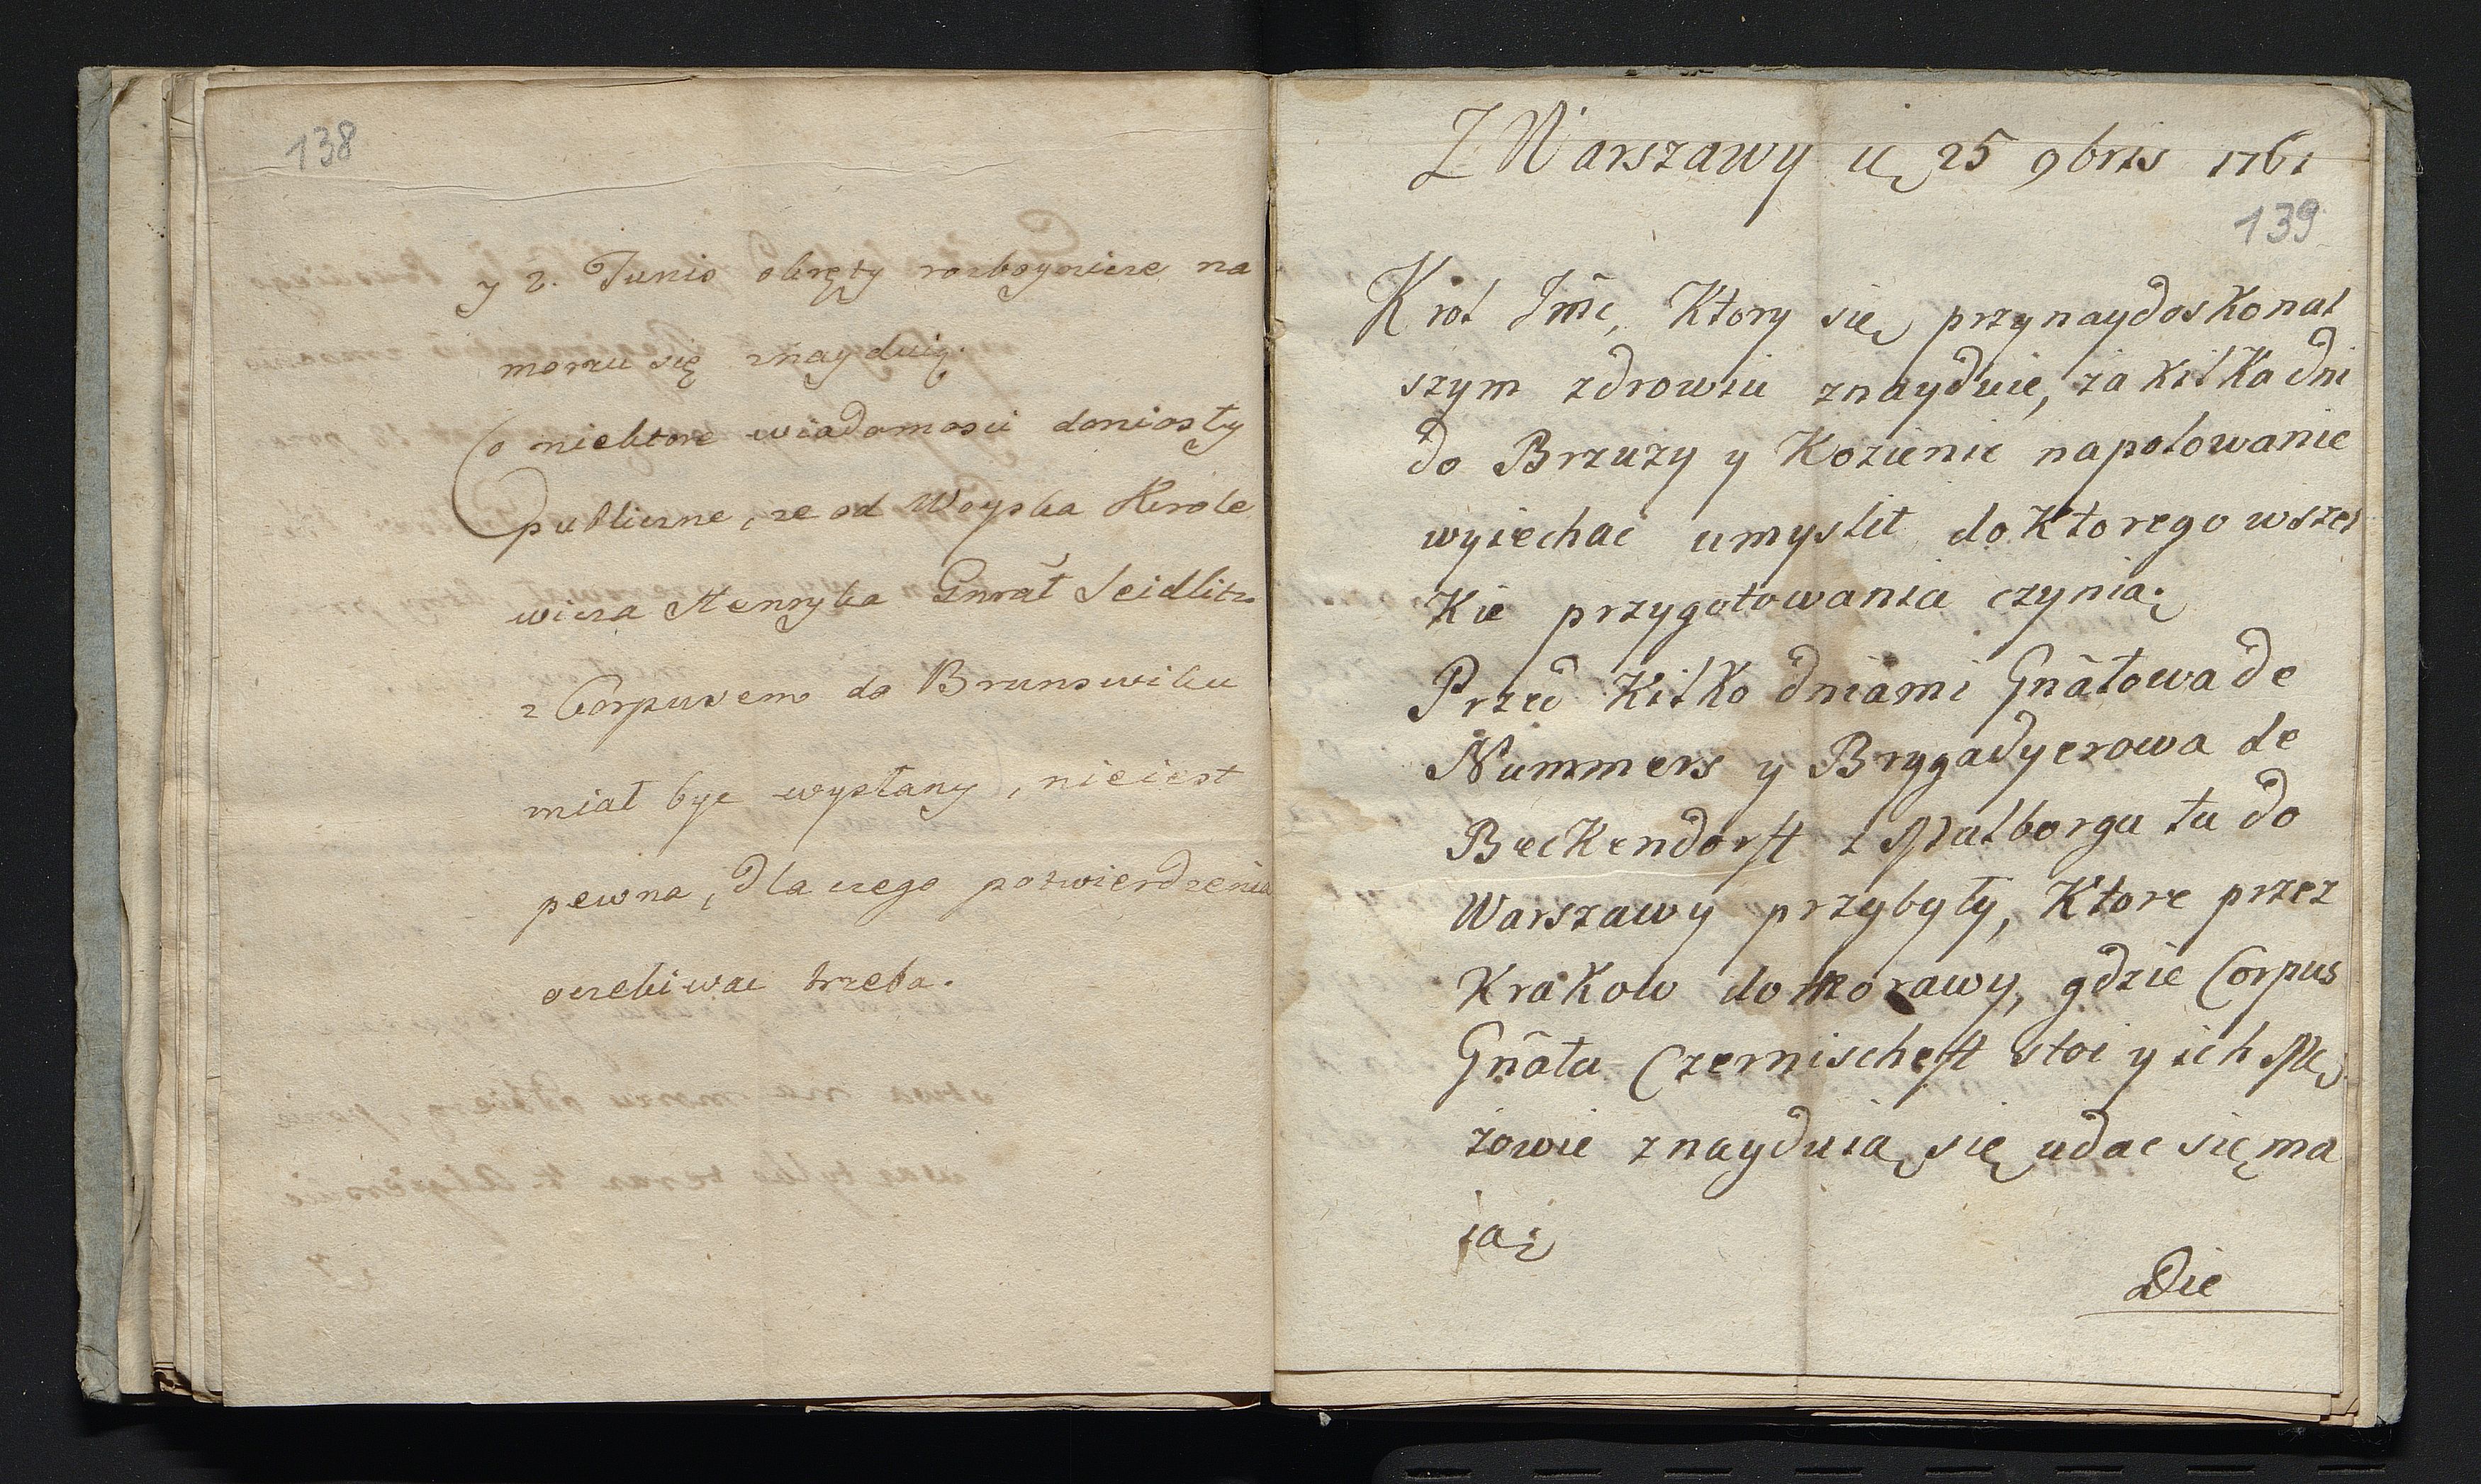 138
y 2. Junio okręty rozboynicze na
morzu się znayduią.
Co niektore wiadomosci doniosły
publiczne, że od Woyska Krole
wicza Henryka Gnrał Seidlitz
z Corpusem do Brunswiku
miał byc wysłany, nie iest
pewna, dla czego potwierdzenia
oczekiwac trzeba.
Z Warszawy 25 9bris 1761
139
Krol Jmć, Ktory się przynaydoskonal
szym zdrowiu znayduie, za kilka dni
do Brzuzy y Kozienic na polowanie
wyiechac umyslil do Ktorego wszel
Kie przygotowania czynią.
Przed Kilko dniami Gnałowa de
Nummers y Brygadyerowa de
Beckendorff z Malborga tu do
Warszawy przybyły, Ktore przez
Krakow do Morawy, gdzie Corpus
Gnała Czernischeff stoi y ich Mę
żowie znayduią się udac się ma
ią
Die